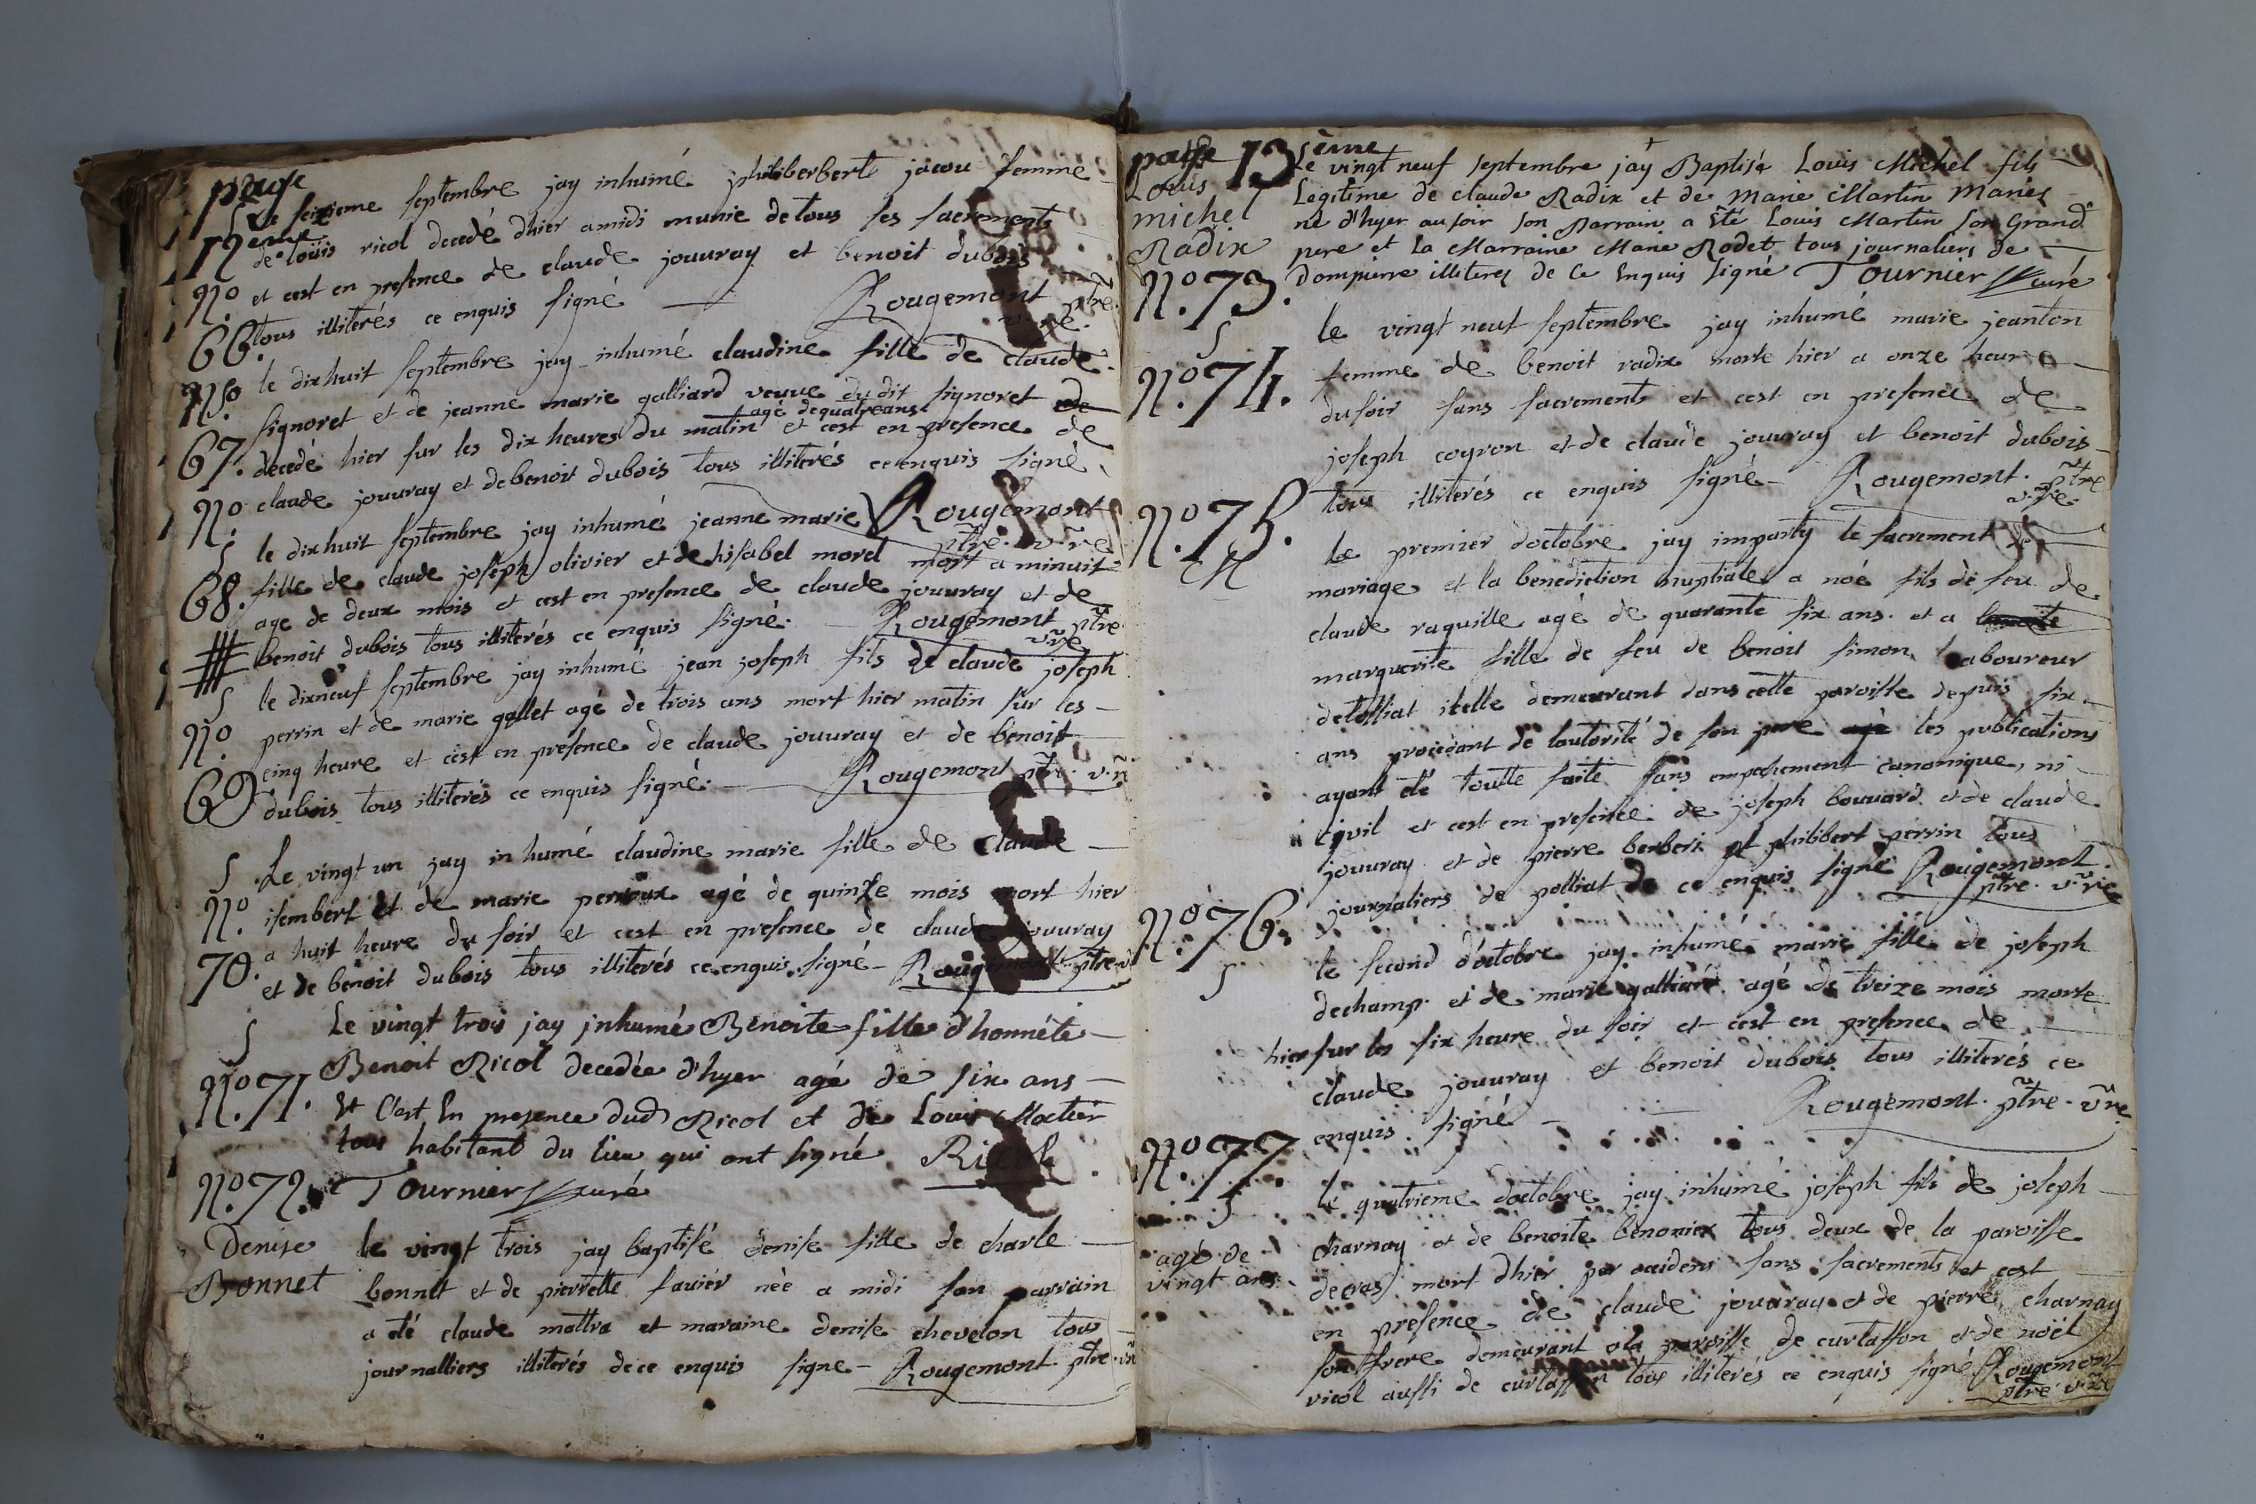 page
12eme
S Le seizieme septembre jay inhumé philiberberte jacou femme
de loüis ricol decedé dhier a midi munie de tous ses sacrements
No. et cest en presence de claude jouuray et benoit dubois
66. tous illiterés ce enquis signé — Rougemont ptre
v.re.
S le dixhuit septembre jay inhumé claudine fille de claude
No. signoret et de jeanne marie galliard veuve du dit signoret de
agé de quatre ans
67. decedé hier sur les dix heures du matin et cest en presence de
claude jouuray et de benoit dubois tous illiterés ce enquis signé
Rougemont
ptre. v.re
No. S le dixhuit septembre jay inhumé jeanne marie
68. fille de claude joseph olivier et de hisabel morel mort a minuit
age de deux mois et cest en presence de claude jouuray et de
benoit dubois tous illiterés ce enquis signé. Rougemont ptre
v.re
S le dixneuf septembre jay inhumé jean joseph fils de claude joseph
No. perrin et de marie gallet agé de trois ans mort hier matin sur les —
69 cinq heure et cest en presence de claude jouuray et de benoit
dubois tous illiterés ce enquis signé. — Rougemont ptre. v.re
S Le vingt un jay inhumé claudine marie fille de claude —
No. isembert et de marie perroux agé de quinze mois mort hier
70. a huit heure du soir et cest en presence de claude jouuray
et de benoit dubois tous illiterés ce enquis signé — Rougemont ptre v
S Le vingt trois jay inhumé Benoite fille d'honnéte —
No. 71. Benoit Ricol decedée d'hyer agé de six ans —
Et C'est En presence dud Ricol et de Louis
tous habitant du lieu qui ont signé Ricol
Tournier curé
No. 72.
Denise
Bonnet
le vingt trois jay baptisé denise fille de charle —
bonnet et de pierrette favier née a midi son parrain
a été claude mattra et maraine denise chevelon tous
journalliers illiterés de ce enquis signe — Rougemont ptre. v.re
page 13eme
Louis
michel
Radix
No. 73.
Le vingt neuf septembre jay Baptisé Louis Michel fils
Legitime de claude Radix et de Marie Martin Mariez
né d'hyer au soir son Parrain a Eté Louis Martin son Grand
pere et La Marraine Marie Rodet tous journaliers de —
Dompierre illiterez de Ce Enquis signé Tournier curé
S
No. 74.
le vingt neuf septembre jay inhumé marie jeanton
femme de benoit radix morte hier a onze heure —
du soir sans sacrements et cest en presence de
joseph coyron et de claude jouuray et benoit dubois —
tous illiterés ce enquis signé — Rougemont. ptre
v.re.
No. 75.
M
le premier doctobre jay imparty le sacrement de —
mariage et la benediction nuptiale a noé fils de feu de
claude raquille agé de quarante six ans. et a
marguerite fille de feu de benoit simon laboureur
de tossiat icelle demeurant dans cette paroisse depuis six —
ans procedant de lautorité de son pere les publications
ayant été toutte faite sans empechement canonique, ni —
civil et cest en presence de joseph bouvard et de claude
jouuray et de pierre berbert et philibert perrin tous
journaliers de polliat de ce enquis signé Rougemont
ptre. v.re
No. 76.
S
le second doctobre jay inhumé marie fille de joseph
dechamp et de marie galliard agé de treize mois morte
hier sur les six heure du soir et cest en presence de —
claude jouuray et benoit dubois tous illiterés ce
enquis signé — Rougemont. ptre. v.re
No. 77
S
agé de
vingt ans
le quatrieme doctobre jay inhumé joseph fils de joseph —
charnay et de benoite benonier tous deux de la paroisse
de cras mort dhier par accident sans sacrements et cest —
en presence de claude jouuray et de pierre charnay
son frere demeurant a la paroisse de curtaffon et de noël
ricol aussi de curtaffon tous illiterés ce enquis signé Rougemont
ptre v.re